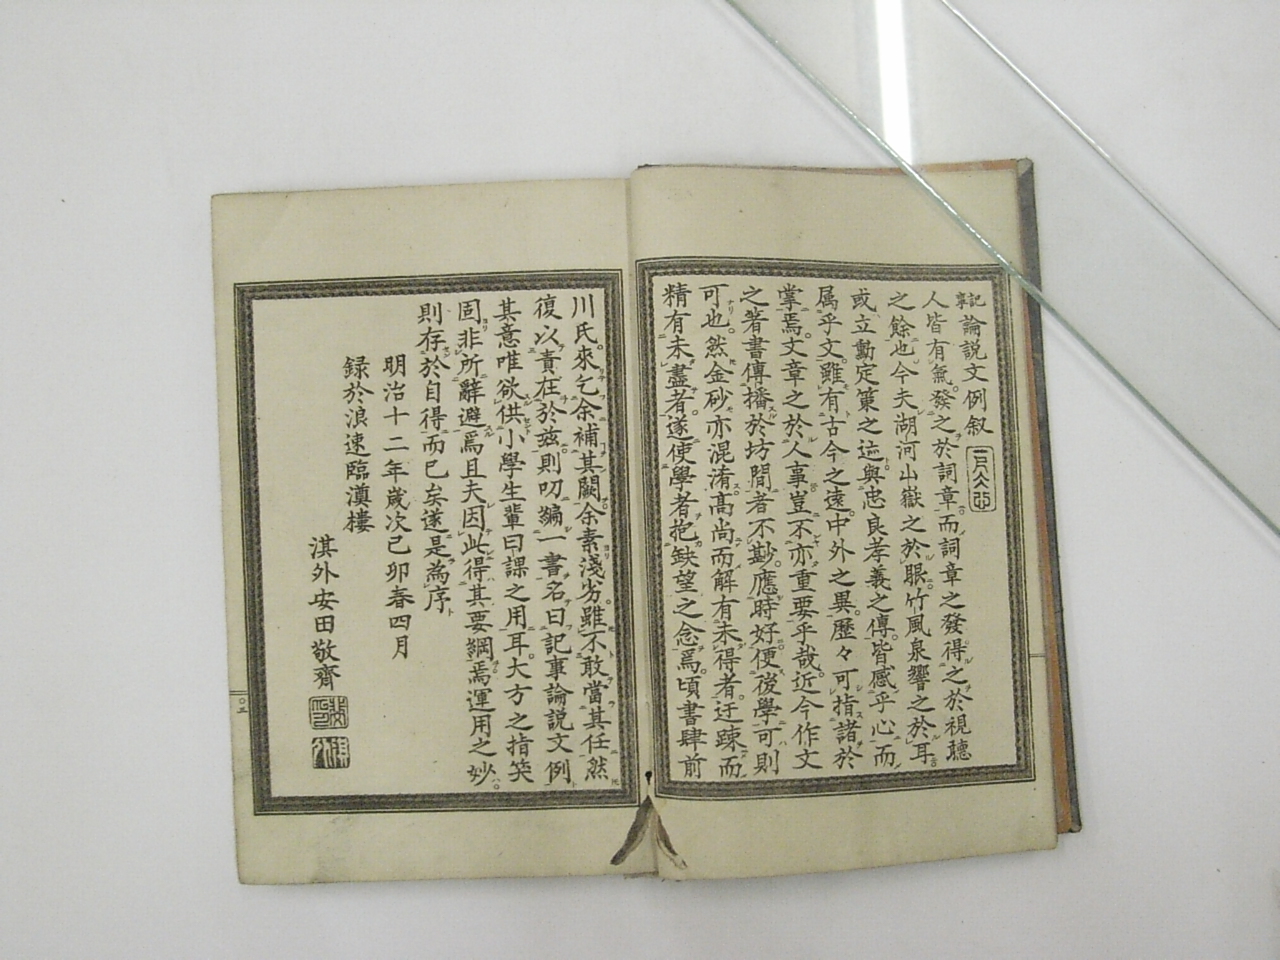 記事論説文例叙
人皆有氣。發之於詞章。而詞章之發得之於視聽
之餘也今夫湖河山嶽之於眼。竹風泉響之於耳。
或立動定策之迹與忠良孝義之傳。皆感乎心而
属乎文。雖有古今之遠。中外之異。歴々可指諸於
掌焉。文章之於人事豈不亦重要乎哉。近今作文
之著書傳播於坊間者不尠。應時好便後學可則
可也。然金砂亦混淆高尚而解有未得者。迂踈而
精有未盡者。遂使學者抱缺望之念焉。頃書肆前
川氏。來乞余補其闕余素淺劣。雖不敢當其任然
復以責在於茲。則叨編一書名曰記事論説文例
其意唯欲供小學生輩日課之用耳。大方之指笑
固非所辭避焉且夫因此得其要綱焉運用之妙。
則存於自得而已矣遂是為序
明治十二年歳次己卯春四月
録於浪速臨漢樓
淇外安田敬齋